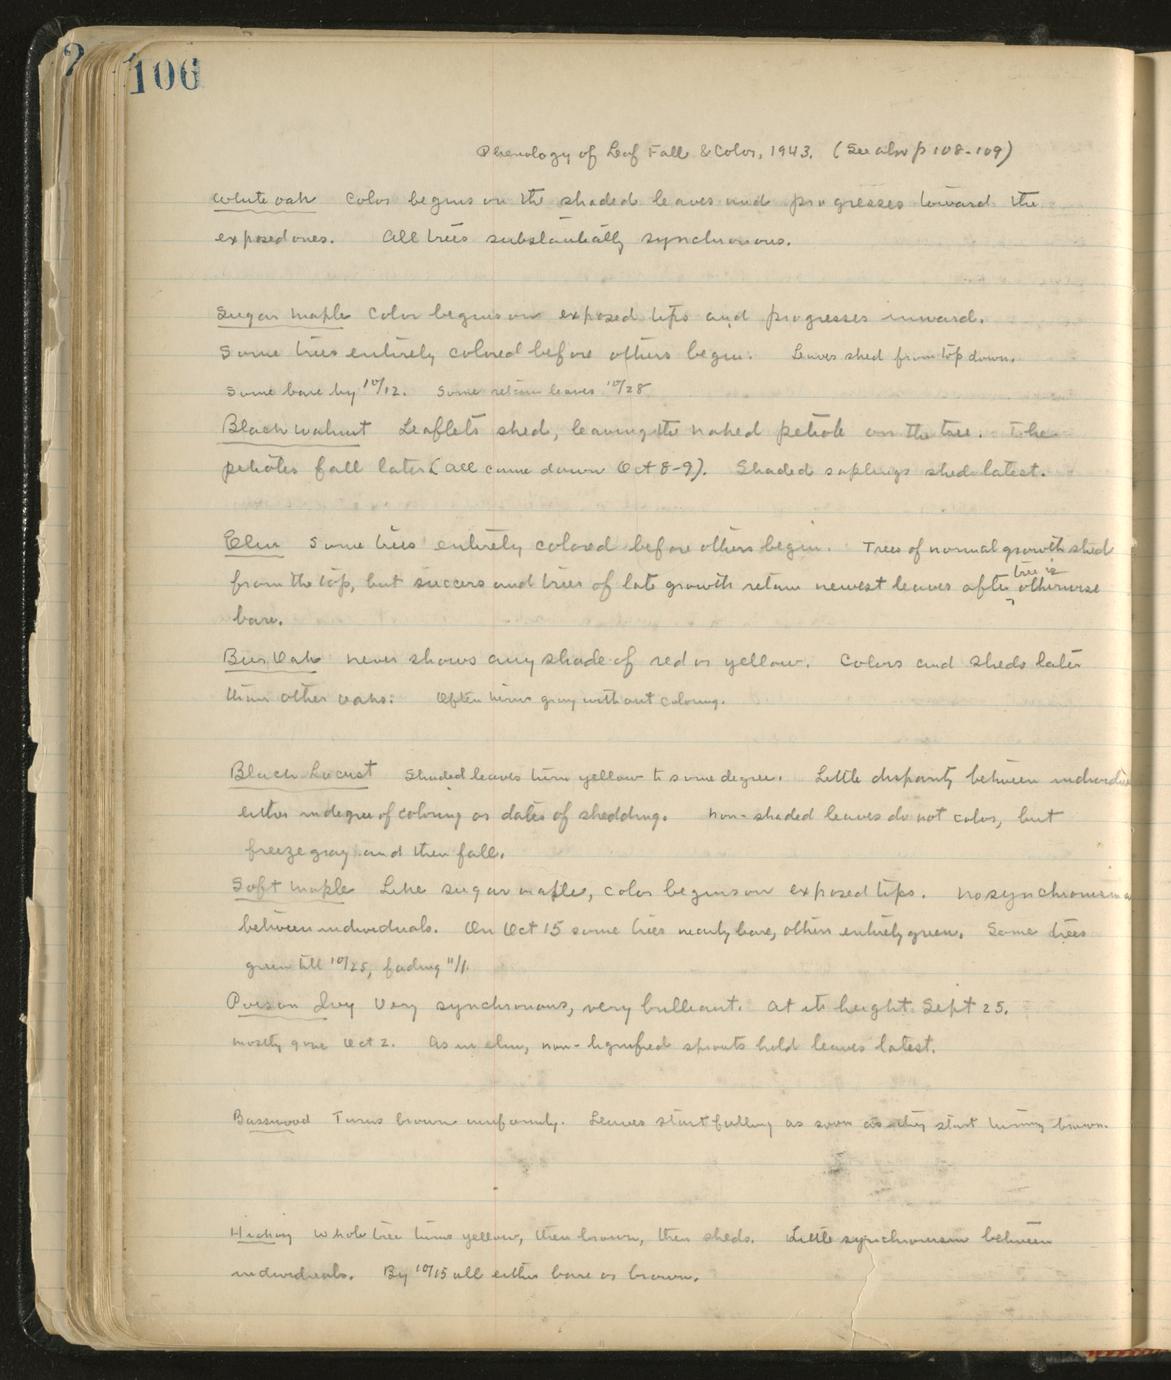 106
Phenology of Leaf Fall & Color, 1943. (See also p 108-109)
White oak Color begins on the shaded leaves and progresses toward the
exposed ones. All trees substantially synchronous.
Sugar maple Color begins on exposed tips and progresses inward.
Some trees entirely colored before others begin. Leaves shed from top down.
Some bare by 10/12. Some retain leaves 10/28
Black walnut Leaflets shed, leaving the naked petiole on the tree. The
petioles fall later (all came down Oct 8-9). Shaded saplings shed latest.
Elm Some trees entirely colored before others begin. Trees of normal growth shed
from the top, but suckers and trees of late growth retain newest leaves after tree is otherwise
bare.
Bur Oak never shows any shade of red or yellow. Colors and sheds later
than other oaks. Often turns gray without coloring.
Black Locust Shaded leaves turn yellow to some degree. Little disparity between
either in degree of coloring or dates of shedding. Non-shaded leaves do not color, but
freeze gray and then fall.
Soft maple Like sugar maple, color begins on exposed tips. No synchronism
between individuals. On Oct 15 some trees nearly bare, others entirely green. Some trees
green till 10/25, fading 11/1.
Poison Ivy Very synchronous, very brilliant. At its height Sept 25.
mostly gone Oct 2. As in elm, non-lignified sprouts hold leaves latest.
Basswood Turns brown uniformly. Leaves start falling as soon as they start turning brown.
Hickory Whole tree turns yellow, then brown, then sheds. Little synchronism between
individuals. By 10/15 all either bare or brown.